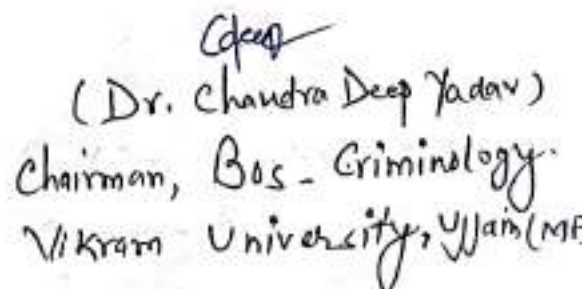 Cdeep
(Dr. Chandra Deep Yadav)
Chairman, Bos - Criminology.
Vikram University, Ujjain (MP